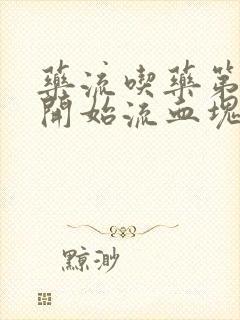 藥流喫藥第
開始流血塊
黥渺